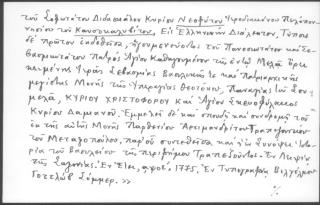 τοῦ Σοφωτάτου Διδασκάλου Κυρίου Νεοφύτου Ἱεροδιακόνου Πελοπον-
νησίου τοῦ Καυσοκαλυβίτου, Εἰς Ἑλληνικὴν Διάλεκτον, Τύποις
δὲ πρῶτον ἐκδοθεῖσα, ἡγουμενεύοντος τοῦ Πανοσιωτάτου καὶ Σε-
βασμιωτάτου Πατρὸς Ἁγίου Καθηγουμένου τῆς ἐν τῷ Μελᾷ ὄρει
κειμένης Ἱερᾶς Σεβασμίας Βασιλικῆς τε καὶ Πατριαρχικῆς
μεγίστης Μονῆς τῆς Ὑπεραγίας Θεοτόκου, Παναγίας τοῦ Σου-
μελᾶ, ΚΥΡΙΟΥ ΧΡΙΣΤΟΦΟΡΟΥ καὶ Ἁγίου Σκευοφύλακος
Κυρίου Δαμιανοῦ. Ἐπιμελείᾳ δὲ καὶ σπουδῇ καὶ συνδρομῇ τοῦ
ἐκ τῆς αὐτῆς Μονῆς Παρθενίου Ἀρχιμανδρίτου Τραπεζουντίου
τοῦ Μεταξοπούλου, παρ' οὗ συνετέθεισα καὶ ἡ ἐν συνόψει Ἱστο-
ρία τοῦ Βασιλείου τῆς περιφήμου Τραπεζοῦντος. Ἐν Λειψίᾳ
τῆς Σαξονίας. Ἐν Ἔτει, αψοε΄. 1775, Ἐν Τυπογραφίᾳ Βιλχέλμου
Γοττλὼβ Σόμμερ. >>
%